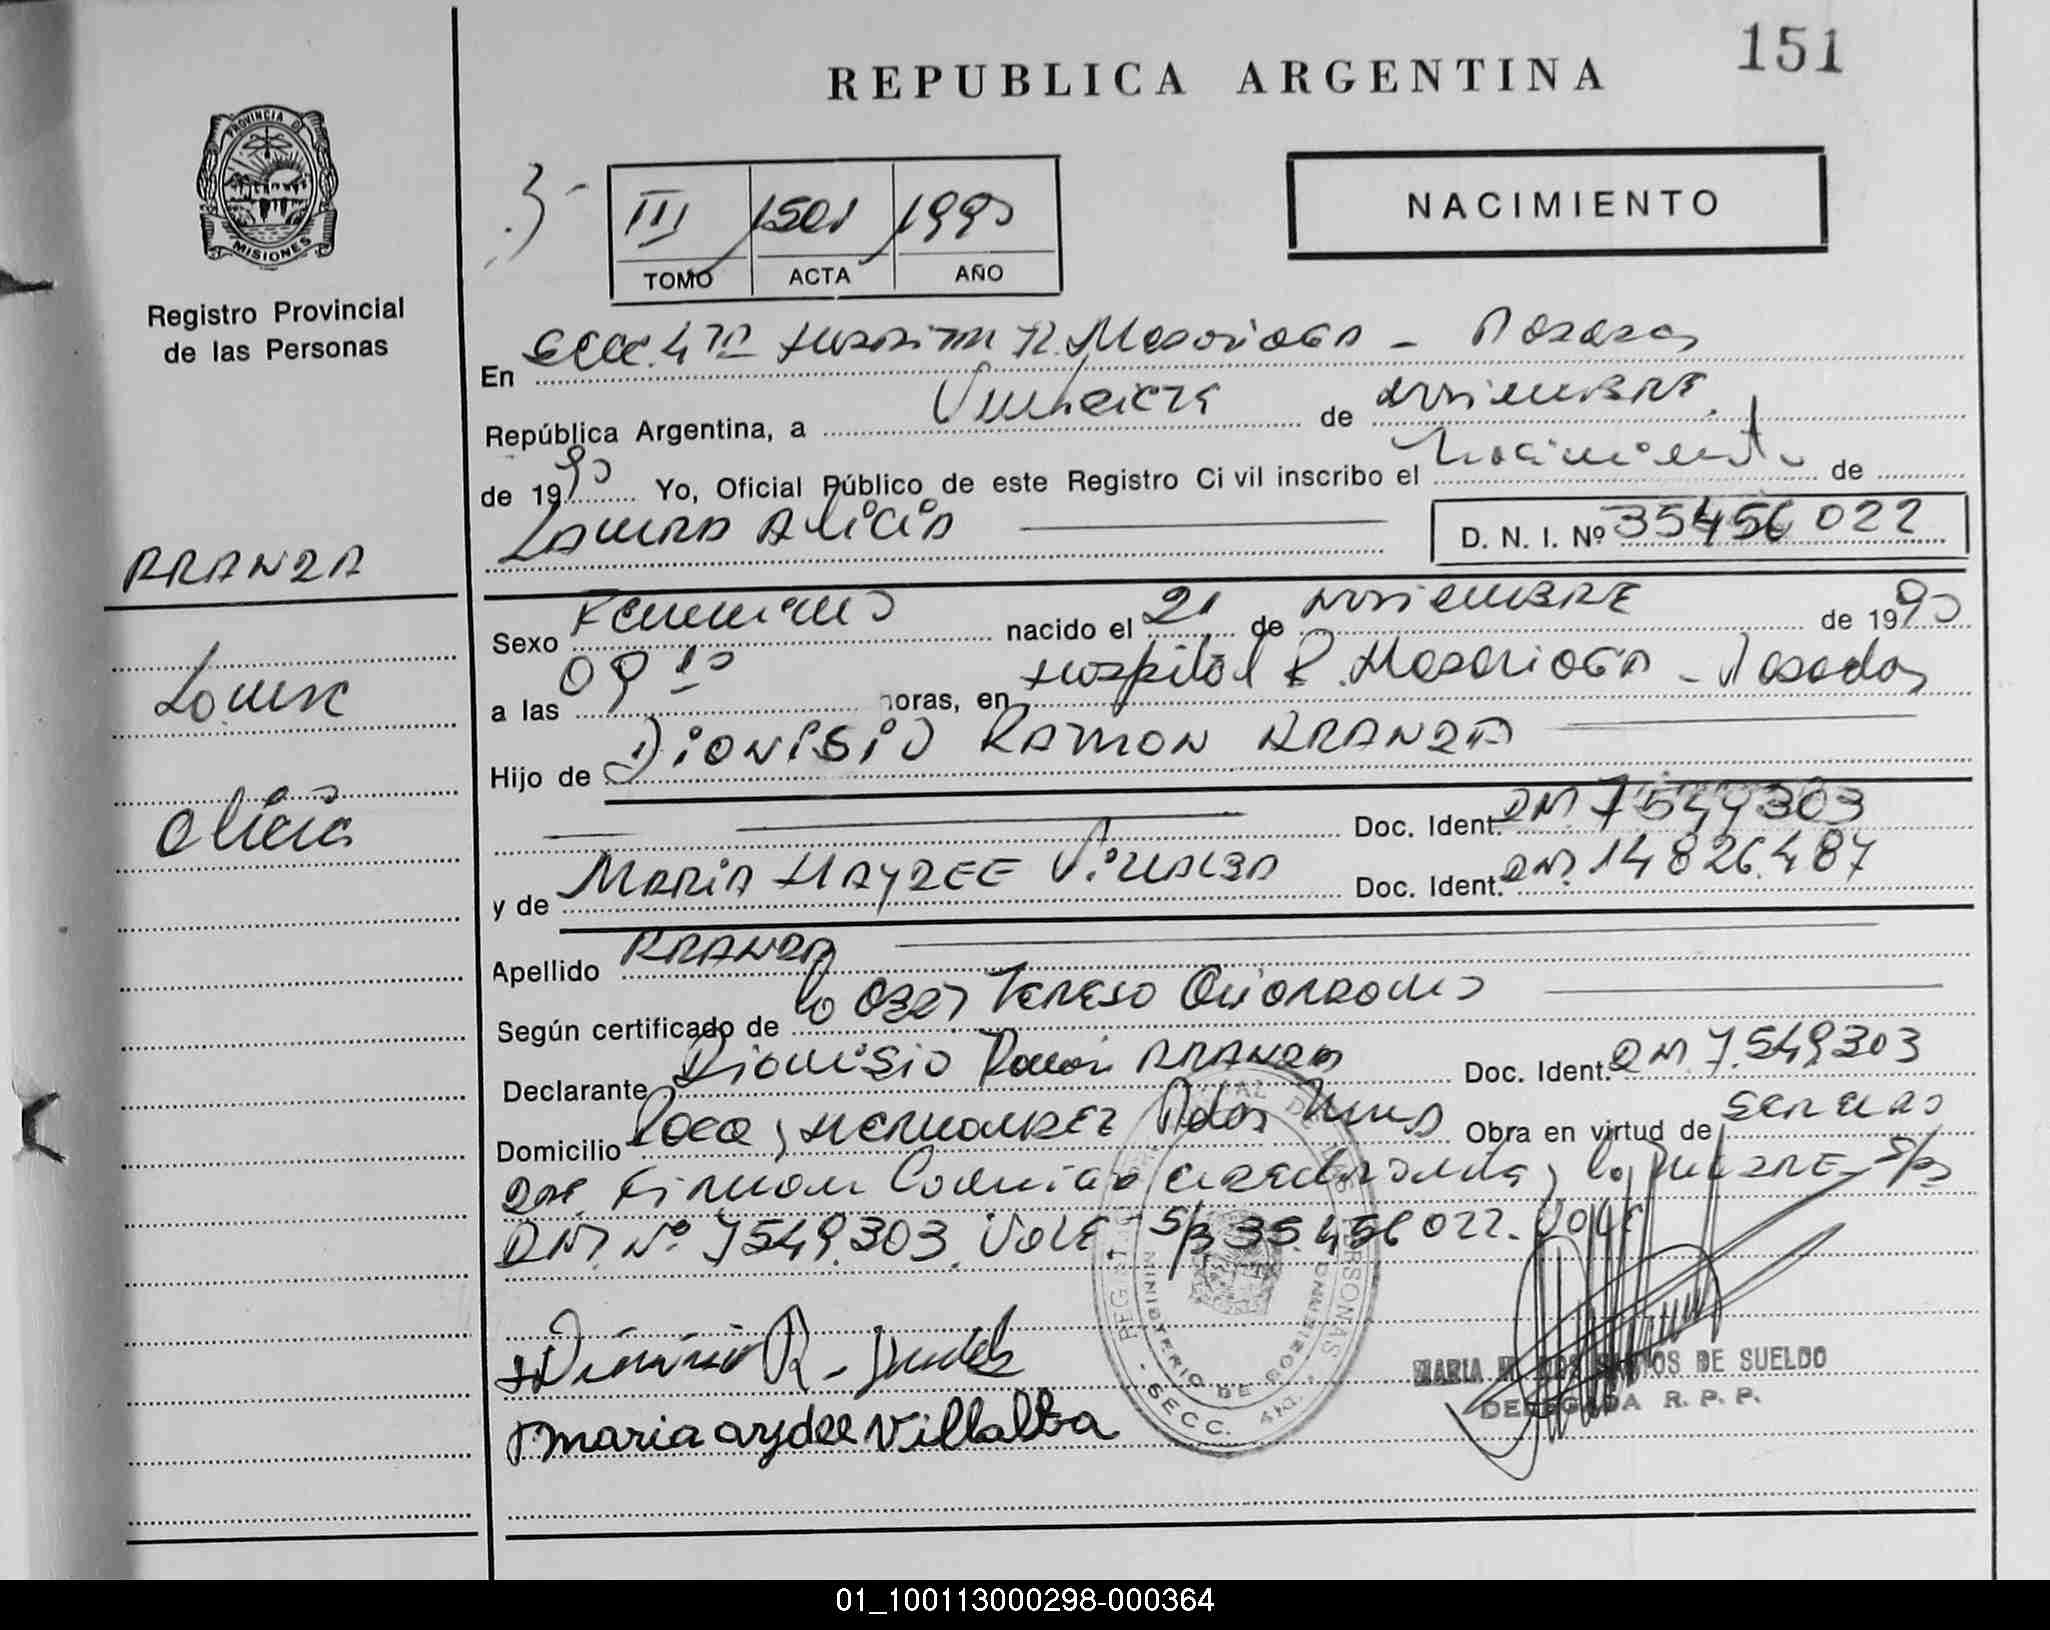 151
REPUBLICA ARGENTINA
PROVINCIA DE
MISIONES
Registro Provincial
de las Personas
NACIMIENTO
III 1501 1990
TOMO ACTA AÑO
En Secc. 4ta Hospital R. Madariaga - Posadas
República Argentina, a Veintisiete de noviembre
de 1990 Yo, Oficial Público de este Registro Civil inscribo el Nacimiento de
Laura Alicia D. N. I. Nº 35456022
ARANDA
Laura
Alicia
Sexo Femenino nacido el 21 de noviembre de 1990
a las 09 10 horas, en Hospital R. Madariaga - Posadas
Hijo de DIONISIO RAMON ARANDA
Doc. Ident. DNI 7549303
y de MARIA HAYDEE Villalba Doc. Ident. DNI. 14826.487
Apellido ARANDA
Según certificado de la Obst Teresa
Declarante Dionisio Ramon ARANDA Doc. Ident. DNI 7.549.303
Domicilio Roca y Hernandez Pdas Mnes Obra en virtud de ser el
que firman y la madre S/B
DNI Nº 7549.303. Vale S/B 35.456022. Vale
REGISTRO PROVINCIAL DE LAS PERSONAS
MINISTERIO DE GOBIERNO
SECC. 4ta.
maria aydee villalba
MARIA DOS SANTOS DE SUELDO
DELEGADA R. P. P.
01_100113000298-000364